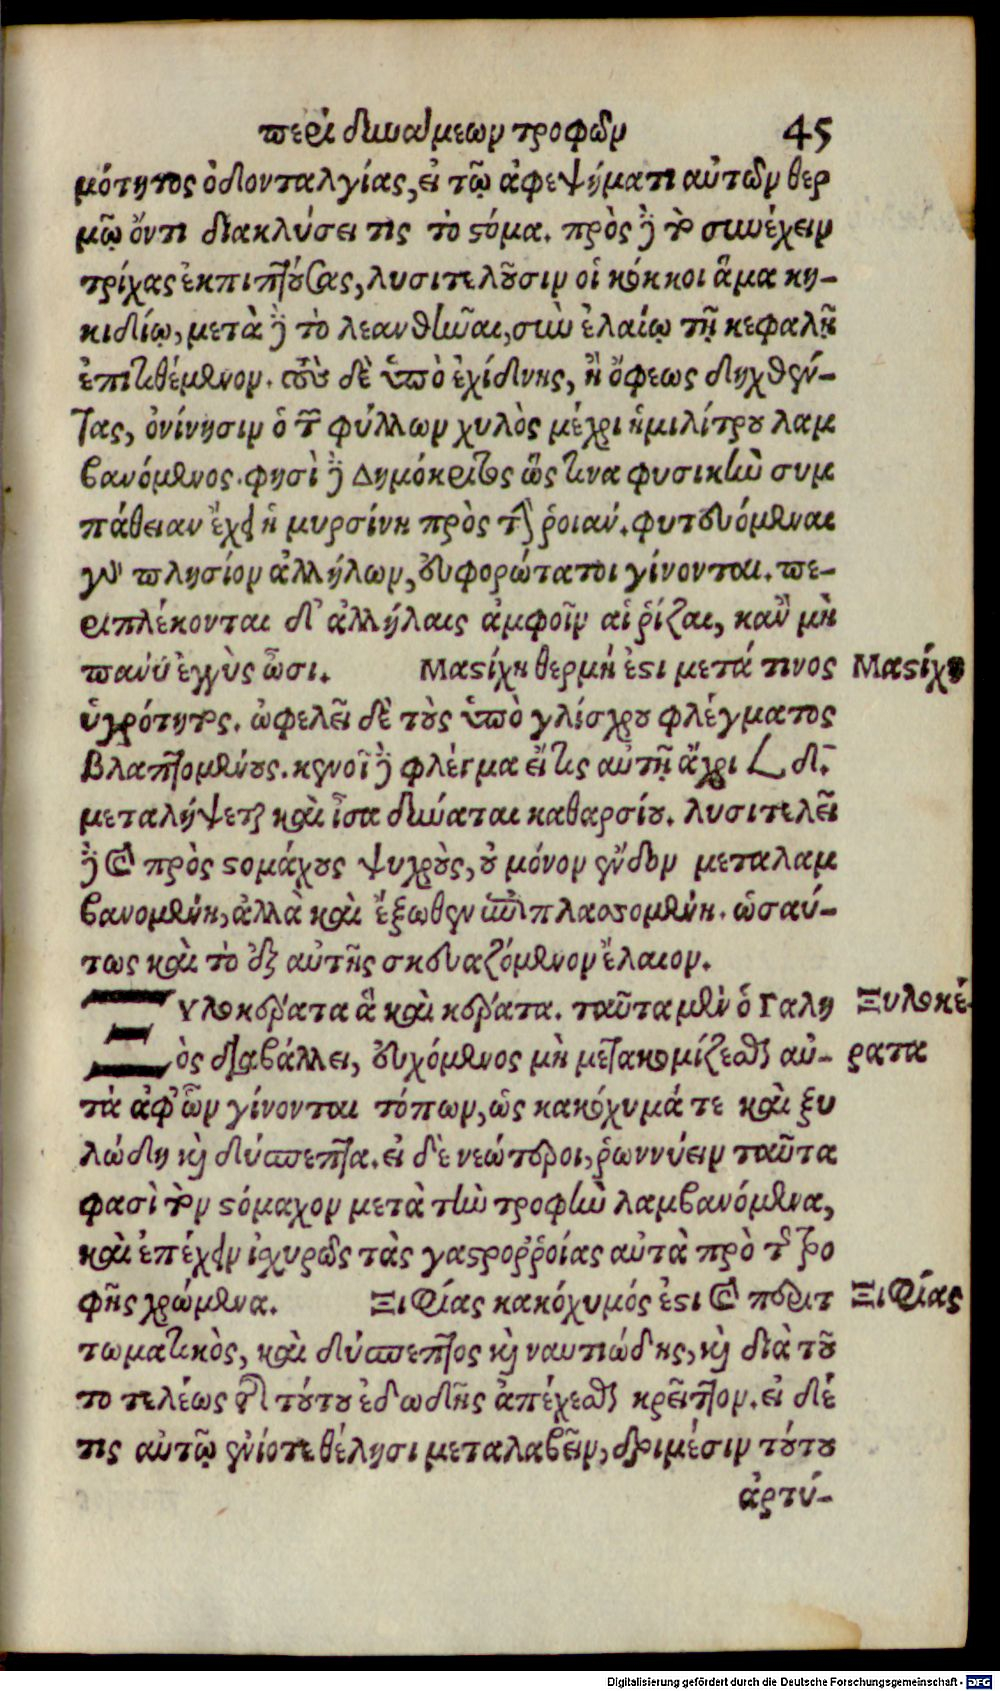 περὶ δυνάμεων τροφῶν 45
μότητος ὀδονταλγίας, εἰ τῷ ἀφεψήματι αὐτῶν θερ
μῷ ὄντι διακλύσει τις τὸ στόμα. πρὸς δὲ τὸ συνέχειν
τρίχας ἐκπιπτούσας, λυσιτελοῦσιν οἱ κόκκοι ἅμα κη-
κιδίῳ, μετὰ δὲ τὸ λεανθῆναι, σὺν ἐλαίῳ τῇ κεφαλῇ
ἐπιτιθέμενον. τοὺς δὲ ὑπὸ ἐχίδνης, ἢ ὄφεως δηχθέν-
τας, ὀνίνησιν ὁ τῶν φύλλων χυλὸς μέχρι ἡμιλίτρου λαμ
βανόμενος. φησὶ δὲ Δημόκριτος ὥς τινα φυσικὴν συμ
πάθειαν ἔχει ἡ μυρσίνη πρὸς τὴν ῥοιαν. φυτευόμεναι
γοῦν πλησίον ἀλλήλων, εὐφορώταται γίνονται. πε-
ριπλέκονται δ' ἀλλήλαις ἀμφοῖν αἱ ῥίζαι, κἂν μὴ
πάνυ ἐγγὺς ὦσι. Μαστίχη θερμή ἐστι μετά τινος
Μαστίχη
ὑγρότητος. ὠφελεῖ δὲ τοὺς ὑπὸ γλίσχρου φλέγματος
βλαπτομένους. κενοῖ δὲ φλέγμα εἴ τις αὐτῇ ἄχρι 𐅻 δ.
μεταλήψεται καὶ ἶσα δύναται καθαρσίου. λυσιτελεῖ
δὲ καὶ πρὸς στομάχους ψυχρὺς, οὐ μόνον ἔνδον μεταλαμ
βανομένη, ἀλλὰ καὶ ἔξωθεν ἐπιπλασσομένη. ὡσαύ-
τως καὶ τὸ ἐξ αὐτῆς σκευαζόμενον ἔλαιον.
Ξυλοκέρατα ἃ καὶ κέρατα. ταῦτα μὲν ὁ Γαλη
Ξυλοκέ-
νὸς διαβάλλει, εὐχόμενος μὴ μετακομίζεσθαι αὐ-
ρατα
τὰ ἀφ' ὧν γίνονται τόπων, ὡς κακόχυμά τε καὶ ξυ
λώδη καὶ δύσπεπτα. εἰ δὲ νεώτεροι, ῥωννύειν ταῦτα
φασὶ τὸν στόμαχον μετὰ τὴν τροφὴν λαμβανόμενα,
καὶ ἐπέχειν ἰσχυρῶς τὰς γαστρορῤῥοίας αὐτὰ πρὸ τῆς τρο
φῆς χρώμενα. Ξιφίας κακόχυμός ἐστι καὶ περιτ
Ξιφίας
τωματικὸς, καὶ δύσπεπτος καὶ ναυτιώδης, καὶ διὰ τοῦ
το τελέως τῆς τούτου ἐδωδῆς ἀπέχεσθαι κρεῖττον. εἰ δέ
τις αὐτῷ ἐνίοτε θέλησι μεταλαβεῖν, δριμέσιν τούτου
ἀρτύ-
Digitalisierung gefördert durch die Deutsche Forschungsgemeinschaft - DFG